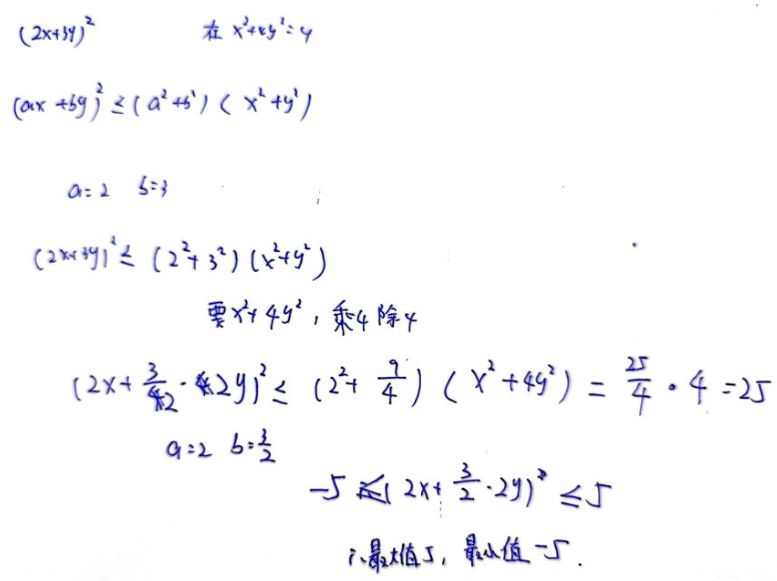 (2x+3y)² 在 x²+4y²=4
(ax+by)² ≤ (a²+b²)(x²+y²)
a=2 b=3
(2x+3y)² ≤ (2²+3²)(x²+y²)
要x²+4y²，乘4除4
(2x+3/2·2y)² ≤ (2²+9/4)(x²+4y²) = 25/4·4=25
a=2 b=3/2
-5 ≤ (2x+3/2·2y)² ≤5
∴最大值5，最小值-5.